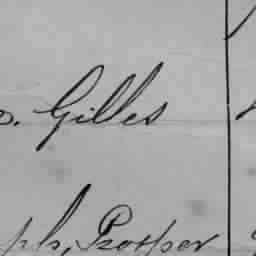 Gilles
ph, Prosper